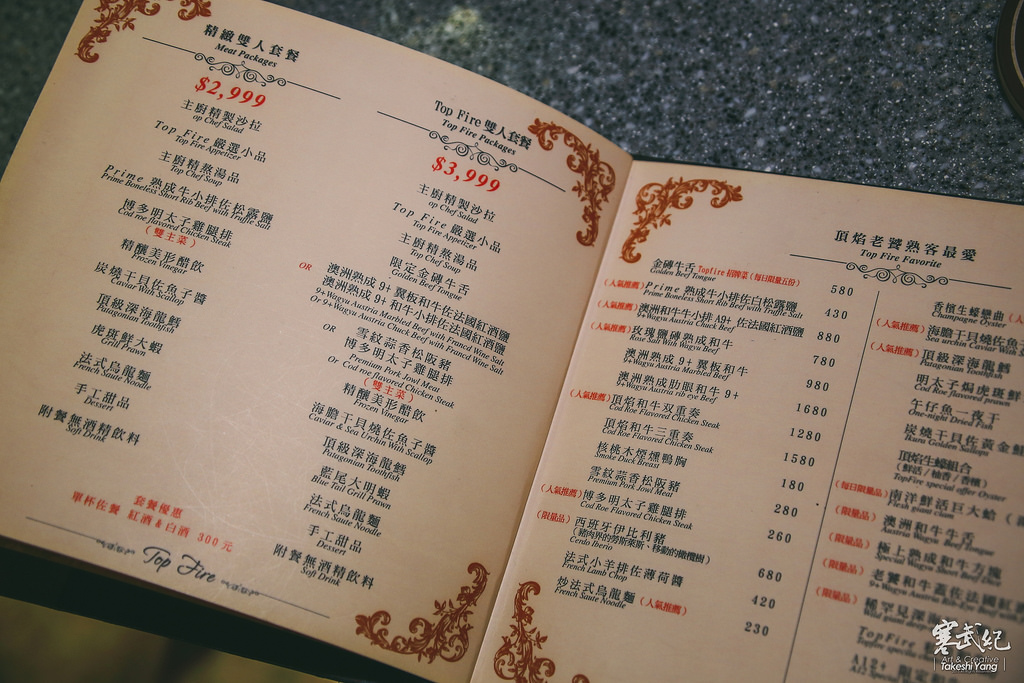 精緻雙人套餐
Meat Packages
$2,999
主廚精製沙拉
op Chef Salad
Top Fire 嚴選小品
Top Fire Appetizer
主廚精熬湯品
Top Chef Soup
Prime 熟成牛小排佐松露鹽
Prime Boneless Short Rib Beef with Truffle Salt
博多明太子雞腿排
Cod roe flavored Chicken Steak
(雙主菜)
精釀美形醋飲
Frozen Vinegar
炭燒干貝佐魚子醬
Caviar With Scallop
頂級深海龍鱈
Patagonian Toothfish
虎斑鮮大蝦
Grill Prawn
法式烏龍麵
French Saute Noodle
手工甜品
Dessert
附餐無酒精飲料
Soft Drink
套餐優惠
單杯佐餐 紅酒&白酒 300元
Top Fire
Top Fire 雙人套餐
Top Fire Packages
$3,999
主廚精製沙拉
op Chef Salad
Top Fire 嚴選小品
Top Fire Appetizer
主廚精熬湯品
Top Chef Soup
限定金磚牛舌
Golden Beef Tongue
澳洲熟成 9+ 翼板和牛佐法國紅酒鹽
OR 澳洲熟成 9+ 和牛小排佐法國紅酒鹽
9+Wagyu Austria Marbled Beef with Francd Wine Salt
Or 9+Wagyu Austria Chuck Beef with Francd Wine Salt
雪紋蒜香松阪豬
OR 博多明太子雞腿排
Premium Pork Jowl Meat
Or Cod roe flavored Chicken Steak
(雙主菜)
精釀美形醋飲
Frozen Vinegar
海膽干貝燒佐魚子醬
Caviar & Sea Urchin With Scallop
頂級深海龍鱈
Patagonian Toothfish
藍尾大明蝦
Blue Tail Grill Pawn
法式烏龍麵
French Saute Noodle
手工甜品
Dessert
附餐無酒精飲料
Soft Drink
頂焰老饕熟客最愛
Top Fire Favorite
金磚牛舌 Topfire 招牌菜(每日限量五份) 580
Golden Beef Tongue
(人氣推薦) Prime 熟成牛小排佐白松露鹽 430
Prime Boneless Short Rib Beef with Truffle Salt
(人氣推薦) 澳洲和牛牛小排 A9+ 佐法國紅酒鹽 880
9+Wagyu Austria Chuck Beef
(人氣推薦) 玫瑰鹽磚熟成和牛 780
Rose Salt With Wagyu Beef
澳洲熟成 9+ 翼板和牛 980
9+Wagyu Austria Marbled Beef
澳洲熟成肋眼和牛 9+ 1680
9+Wagyu Austria rib eye Beef
(人氣推薦) 頂焰和牛双重奏 1280
Cod Roe Flavored Chicken Steak
頂焰和牛三重奏 1580
Cod Roe Flavored Chicken Steak
核桃木煙燻鴨胸 180
Smoke Duck Breast
雪紋蒜香松阪豬 280
Premium Pork Jowl Meat
(人氣推薦) 博多明太子雞腿排 260
Cod Roe Flavored Chicken Steak
(限量品) 西班牙伊比利豬 680
(豬肉界的勞斯萊斯、移動的橄欖樹)
Cerdo Iberio
法式小羊排佐薄荷醬 420
French Lamb Chop
炒法式烏龍麵 (人氣推薦) 230
French Saute Noodle
香檳生蠔戀曲 (人
Champagne Oyster
(人氣推薦) 海膽干貝燒佐魚子
Sea urchin Caviar With S
(人氣推薦) 頂級深海龍鱈
Patagonian Toothfish
明太子焗虎斑鮮
Cod Roe flavored Pra
午仔魚一夜干
One-night Dried Fish
炭燒干貝佐黃金鮭
Ikura Golden Scallops
頂焰生蠔組合
(鮮活/柚香/香檳)
TopFire special offer Oyster
(每日限量品) 南洋鮮活巨大蛤 (
Flesh giant clam
(限量品) 澳洲和牛牛舌
Austria Wagyu Beef Tongue
(限量品) 極上熟成和牛方塊
Special Wagyu Austria Beef Dice
(限量品) 老饕和牛蓋佐法國紅
(限量品) 稀罕見深海
TopFire
A12+ 限定和
寒武紀
Art & Creative
Takeshi Yang